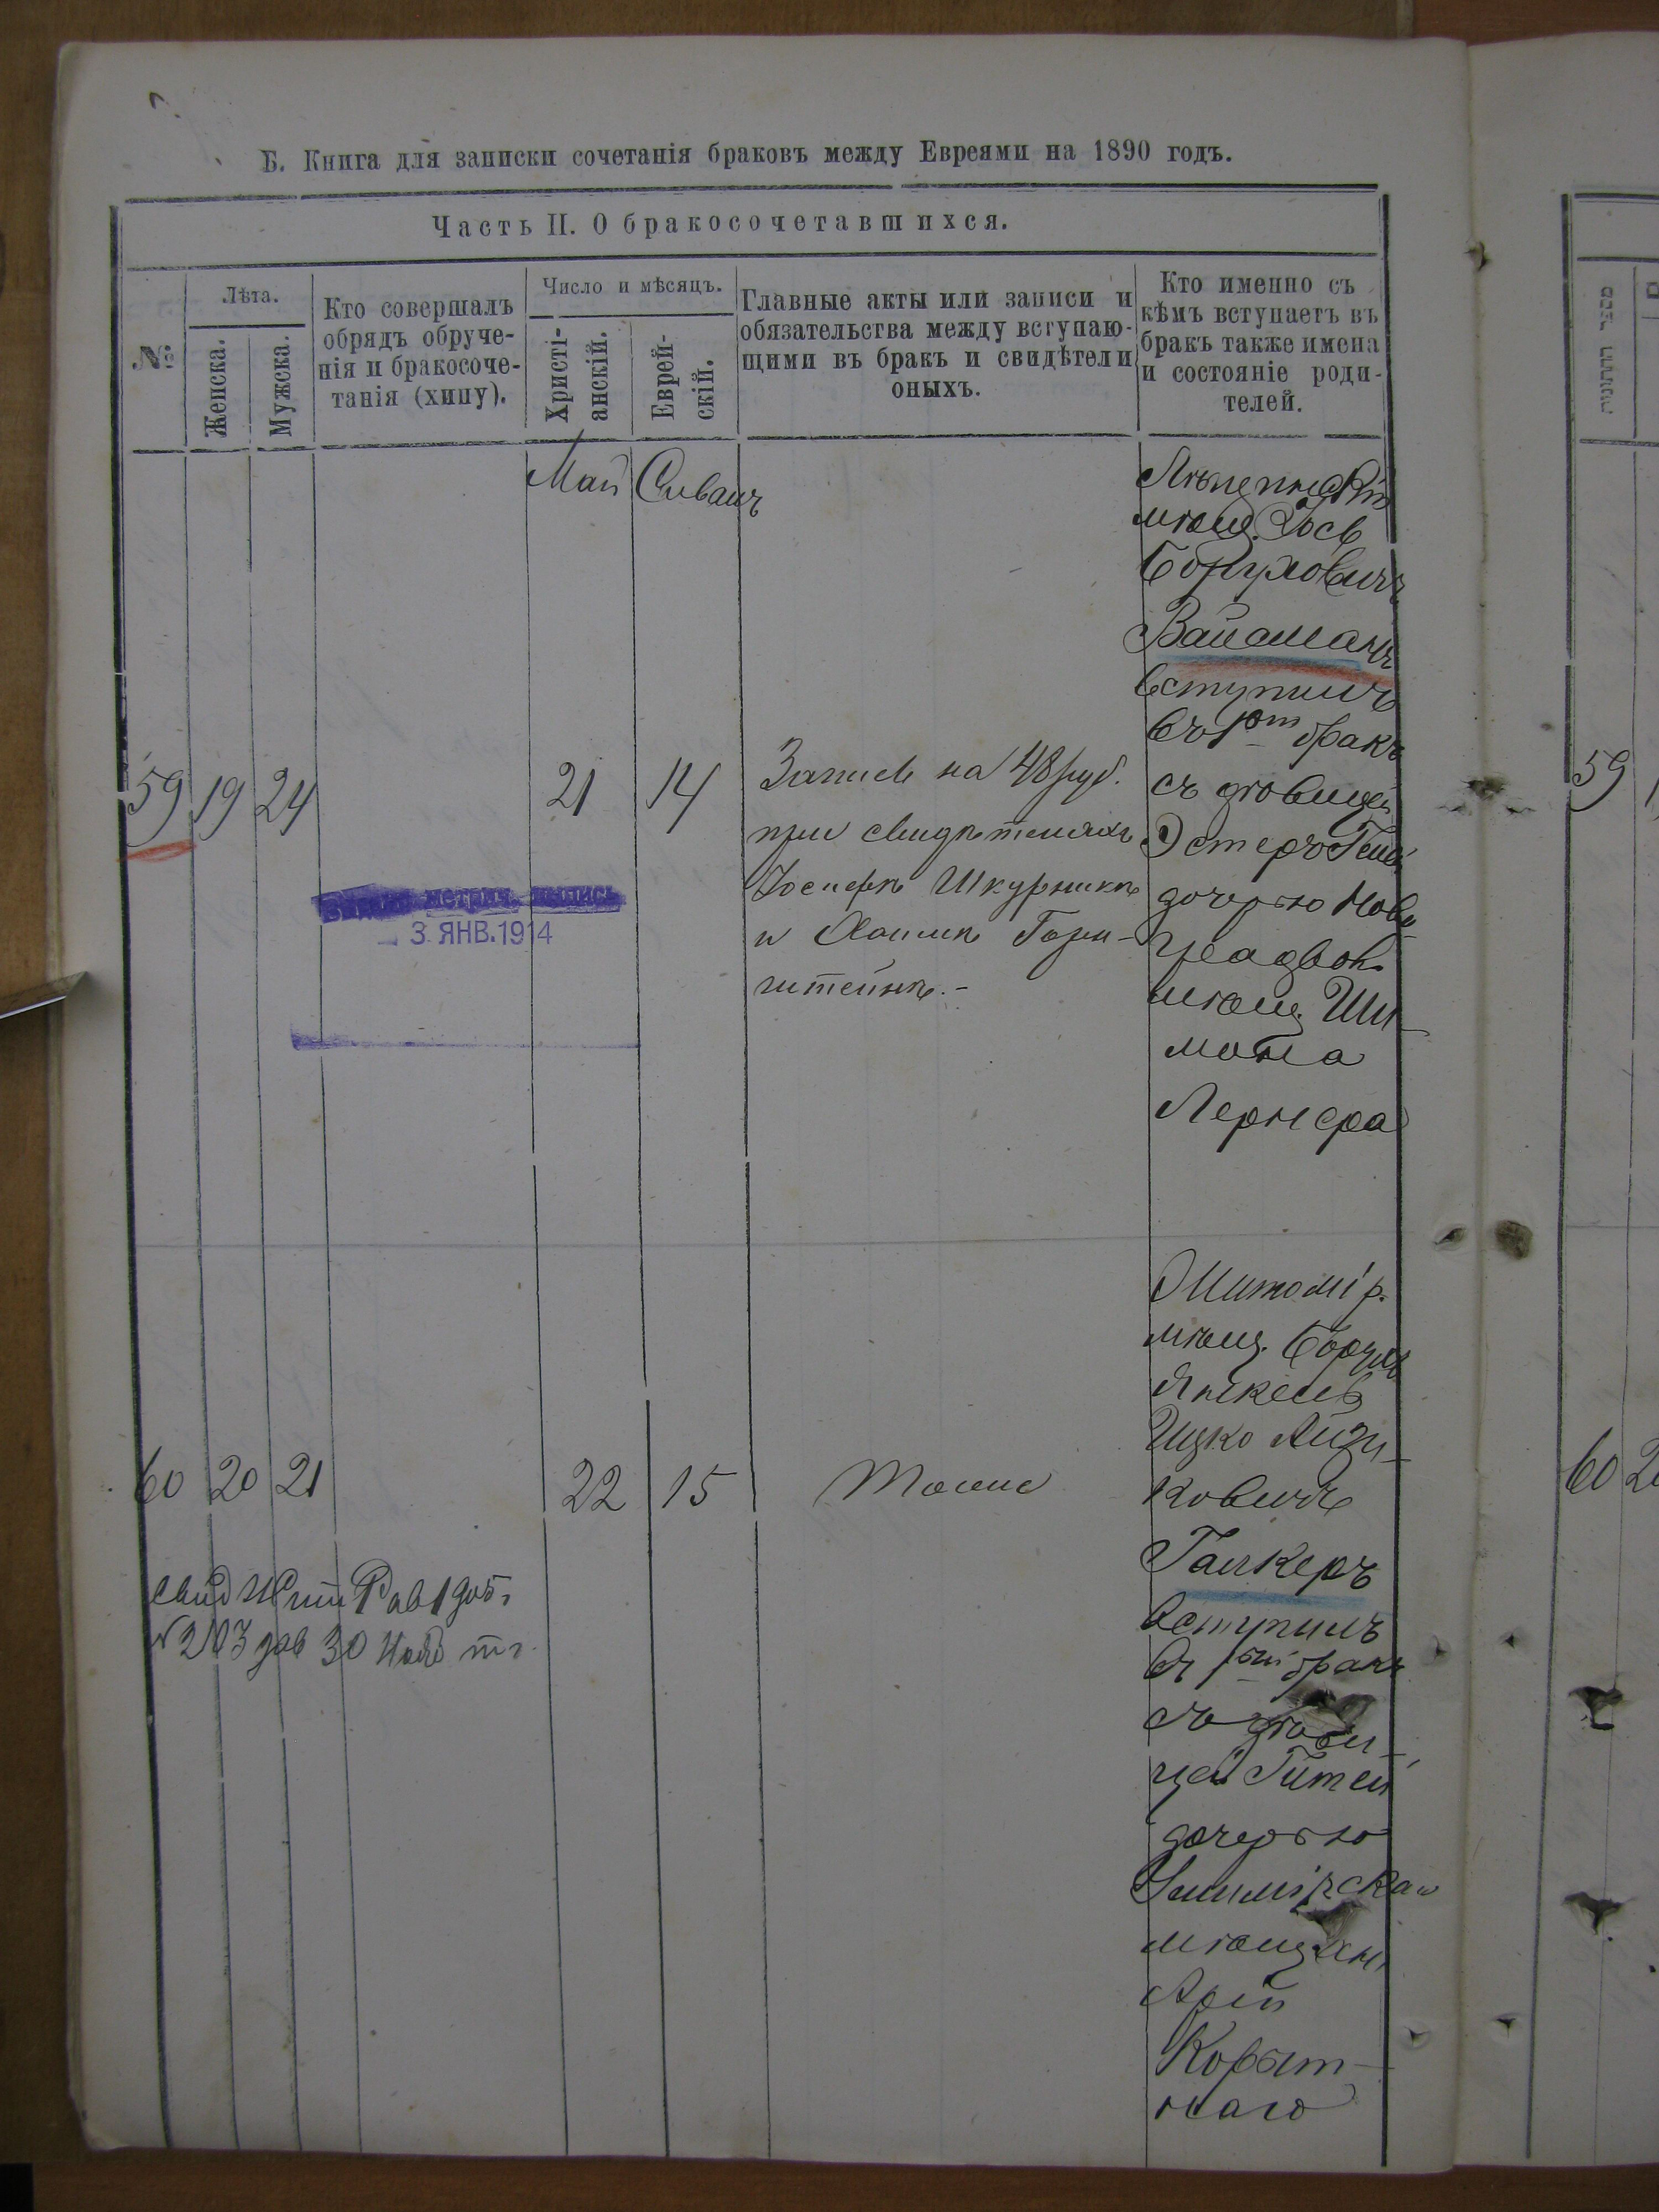 Б. Книга для записки сочетанія браковъ между Евреями на 1890 годъ.
Часть II. О бракосочетавшихся.
№
Лѣта.
Женска.
Мужска.
Кто совершалъ
обрядъ обруче-
нія и бракосоче-
танія (хипу).
Число и мѣсяцъ.
Христі-
анскій.
Еврей-
скій.
Главные акты или записи и
обязательства между вступаю-
щими въ бракъ и свидѣтели
оныхъ.
Кто именно съ
кѣмъ вступаетъ въ
бракъ также имена
и состояніе роди-
телей.
Май Сиванъ
59 19 24
21 14
Запись на 48 руб.
при свидѣтеляхъ
Іосифѣ Шкурникѣ
и Хаимѣ Горн-
штейнѣ.-
мѣщ. Іось
Боруховичъ
Вайсманъ
вступилъ
въ 1й бракъ
съ дѣвицей
Эстеръ
дочерью Нов
градвол.
мѣщ. Ши-
мона
Лернера
метрич. выпись
3 ЯНВ. 1914
60 20 21
22 15
Тоже
Житомір.
мѣщ. Борухъ
Янкель
Ицко Айзи-
ковичъ
Галкеръ
вступилъ
въ 1й бракъ
съ дѣви-
цей Гитей
дочерью
мѣщан.
Арій
Корыт-
наго
свид Жит Рав
30 т. г.
59
60 2